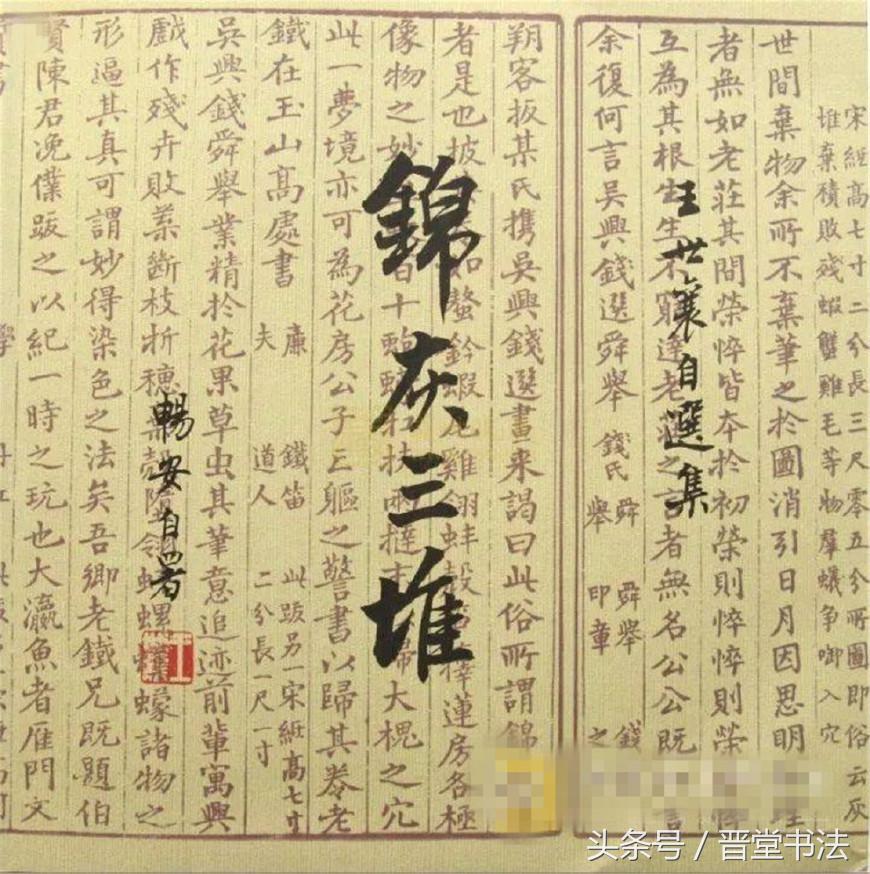 錦灰三堆
王世襄自選集
暢安自署
宋紙高七寸二分長三尺零五分所圖即俗云灰
堆棄積敗殘蝦蟹雞毛等物羣蟻爭啣入穴
世間棄物余所不棄筆之於圖消引日月因思明
者無如老莊其間榮悴皆本於初榮則悴悴則榮
互為其根生生不窮達老莊之言者無名公公既言
余復何言吳興錢選舜舉 錢氏 舜舉 舜舉印章 錢 之
朔客扳某氏携吳興錢選畫来謁曰此俗所謂錦
者是也披 如螯鈐蝦尾雞翎蚌殼 蓮房各極
像物之妙 大槐之穴
此一夢境亦可為花房公子三軀之警書以歸其卷老
鐵在玉山高處書 廉夫 鐵笛道人 此跋另一宋紙高七寸二分長一尺一寸
吳興錢舜舉業精於花果草虫其筆意追迹前輩寓興
戲作殘卉敗葉斷枝折穗 諸物之
形逼其真可謂妙得染色之法矣吾鄉老鐵兄既題伯
賢陳君俛僕跋之以紀一時之玩也大瀛魚者雁門文
头条号 / 晋堂书法